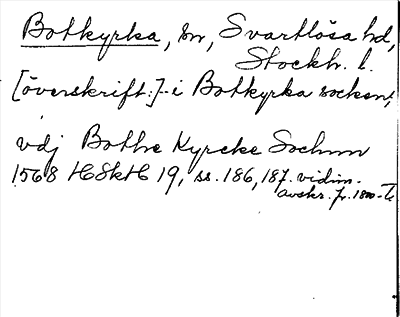 Botkyrka, sn, Svartlösa hd,
Stockh. l.
[överskrift:] i Botkyrka socken,
vdj Bothe Kyrcke Sochnn
1568 HSkH 19, ss. 186, 187. vidim.
avskr. fr. 1800-t.